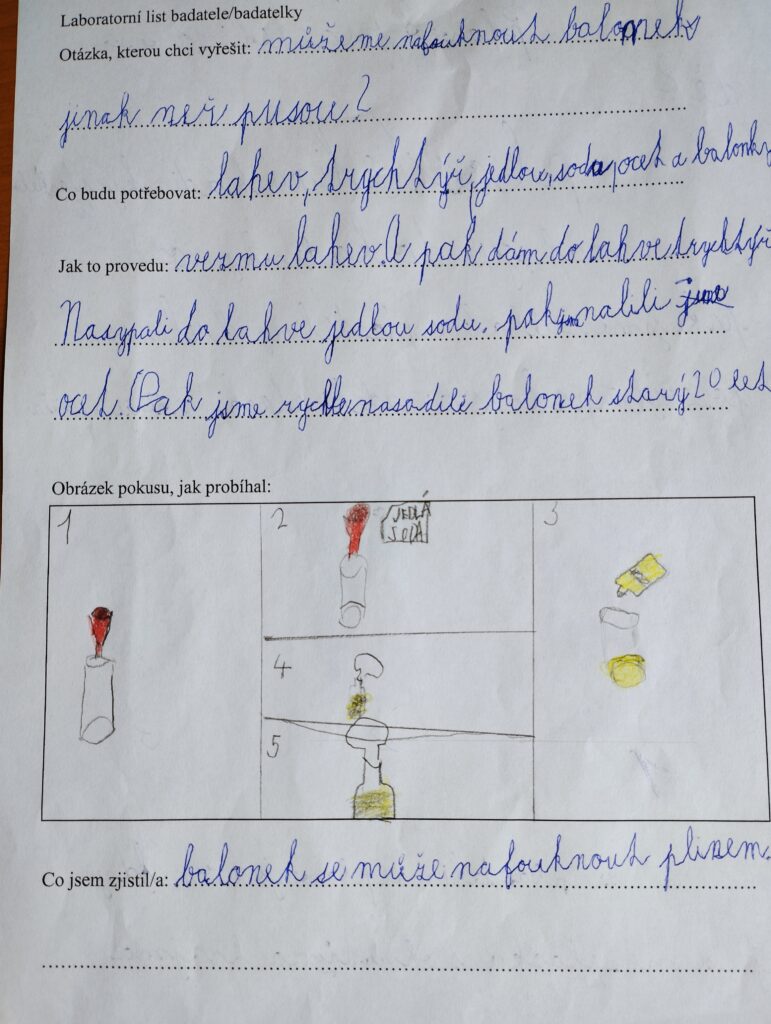 Laboratorní list badatele/badatelky
Otázka, kterou chci vyřešit: můžeme nafouknout balonek
jinak neř pusou?
Co budu potřebovat: lahev, trychtýř, jedlou, soda, ocet a balonky
Jak to provedu: vezmu lahev. A pak dám do lahve trychtýř
Nasypali do lahve jedlou sodu. pak jsme nalili
ocet. Pak jsme rychle nasadili balonek starý 20 let
Obrázek pokusu, jak probíhal:
1
2
JEDLÁ
SODA
3
4
5
Co jsem zjistil/a: balonek se může nafouknout plinem.